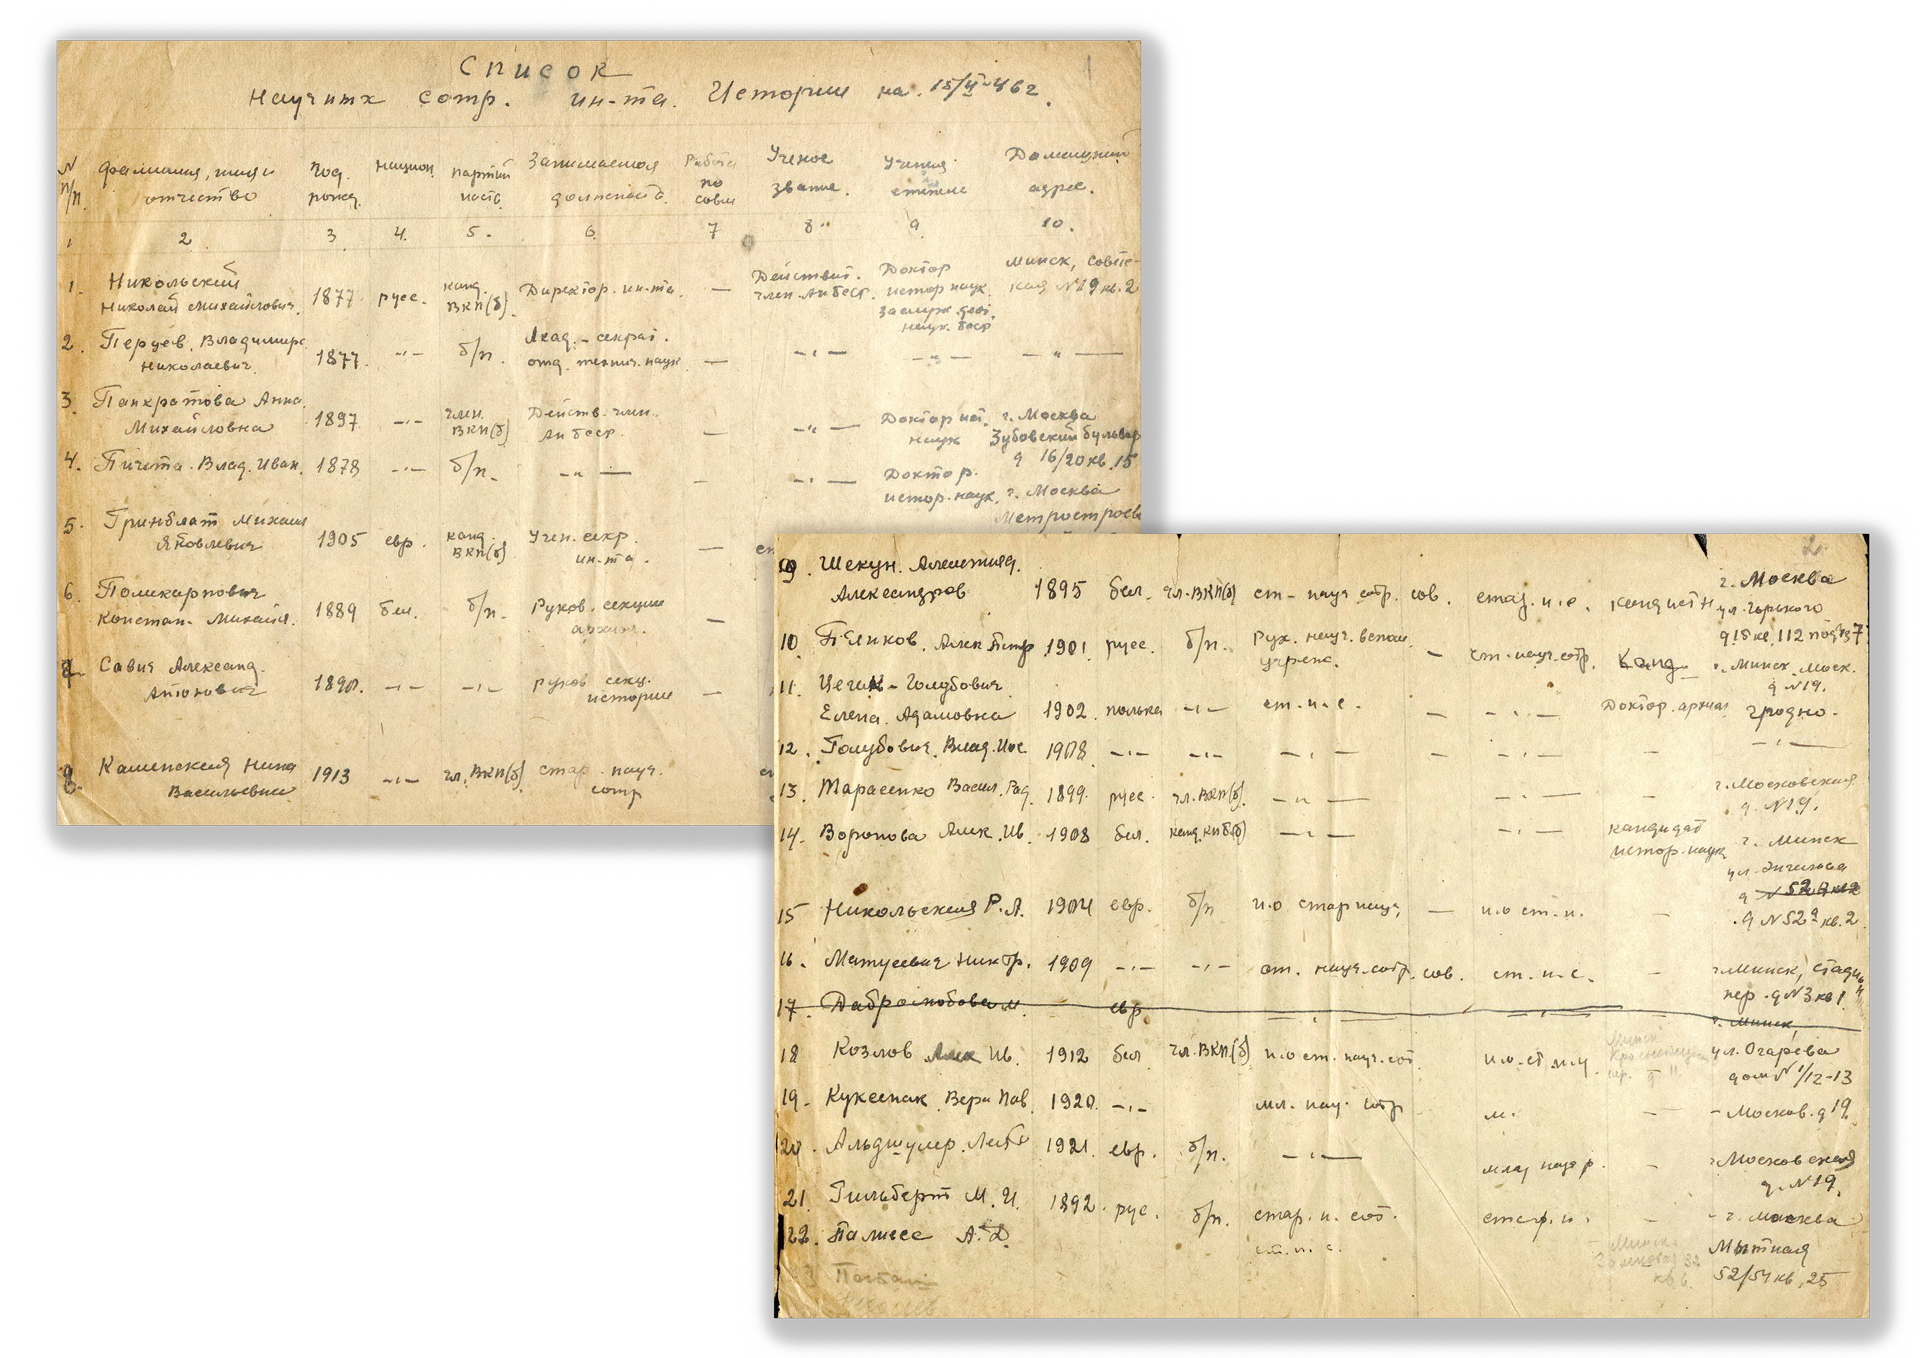 Список
1
Научных сотр. ин-та. Истории на 15/II-46г.
N п/п. Фамилия, имя и отчество Год. рожд. Национ. партий ность Занимаемая должность. Работа по совм Ученое звание. Ученая степень Домашний адрес.
1 2. 3. 4. 5. 6. 7 8 9. 10.
1. Никольский Николай Михайлович. 1877. русс. канд. ВКП(б). Директор. ин-та. — Действит. член. Ан бсср. Доктор истор наук. заслуж. деят. наук. бсср Минск, Совет- ская N19 кв. 2
2. Перцев. Владимир Николаевич. 1877. -"- б/п. Акад. - секрат. отд. — -"- — -"- — -"- —
3. Панкратова Анна. Михайловна 1897. -"- член. ВКП(б) Действ. член. Ан бсср. — -"- — Доктор ист. наук г. Москва Зубовский бульвар д 16/20 кв. 15
4. Пичета. Влад. Иван. 1878 -"- б/п. -"- — - -"- — Доктор. истор. наук. г. Москва Метростроев
5. Гринблат Михаил Яковлевич 1905 евр. канд. ВКП(б). Учен. секр. ин-та. —
6. Поликарпович Констан. Михайл. 1889 бел. б/п. Руков. секции археол. —
7 Савич Александ. Антонович 1890. -"- -"- Руков секц. истории —
8. Каменская Нина Васильевна 1913 -"- чл. ВКП(б) стар. науч. сотр
2.
9. Шекун. Александров 1895 бел. чл. ВКП(б) ст- науч сотр. сов. канд ист н г. Москва ул. Горького
10. Пьянков. Алек Петр 1901 русс. б/п. Рук. науч. учрежд. - ст. науч. сотр. Канд г. Минск моск. д N19.
11. - Голубович. Елена. Адамовна 1902. полька -"- ст. н. с. — -"- — Доктор. археол Гродно.
12. Голубович. Влад. Иос. 1908. -"- -"- -"- — — -"- — - -"-
13. Тарасенко Васил. Рад. 1899. русс. чл. ВКП(б). -"- — -"- — - г. Московская д. N19.
14. Воронова Алек. Ив. 1908 бел. канд. КПб(б) -"- — -"- — кандидат истор. наук г. Минск ул. Энгельса д N 52 д N52а кв. 2
15 Никольская Р. Л. 1904 евр. б/п и.о стар науч — и.о ст. н. -
16. Матусевич Ник Гр. 1909 -"- -"- ст. науч. сотр. сов. ст. н. с. - г. Минск, пер. д N3 кв 1
17. евр -"- -"- г. Минск,
18 Козлов Алек Ив. 1912 бел чл. ВКП(б) и.о ст. науч. сот. и.о. ст. н. ул. Огарева дом N 1/12-13
19. Вера Пав 1920. -"- мл. нау. сотр м. - - Москов. д 19.
20. Альдшулер. 1921. евр. б/п. -"- — - г. Московская д. N19.
21. Гильберт М. И. 1892. рус. б/п. стар. н. сот. - - г. Москва Мытная 52/54 кв, 25
22. Палмссс А. Д ст. н. с.